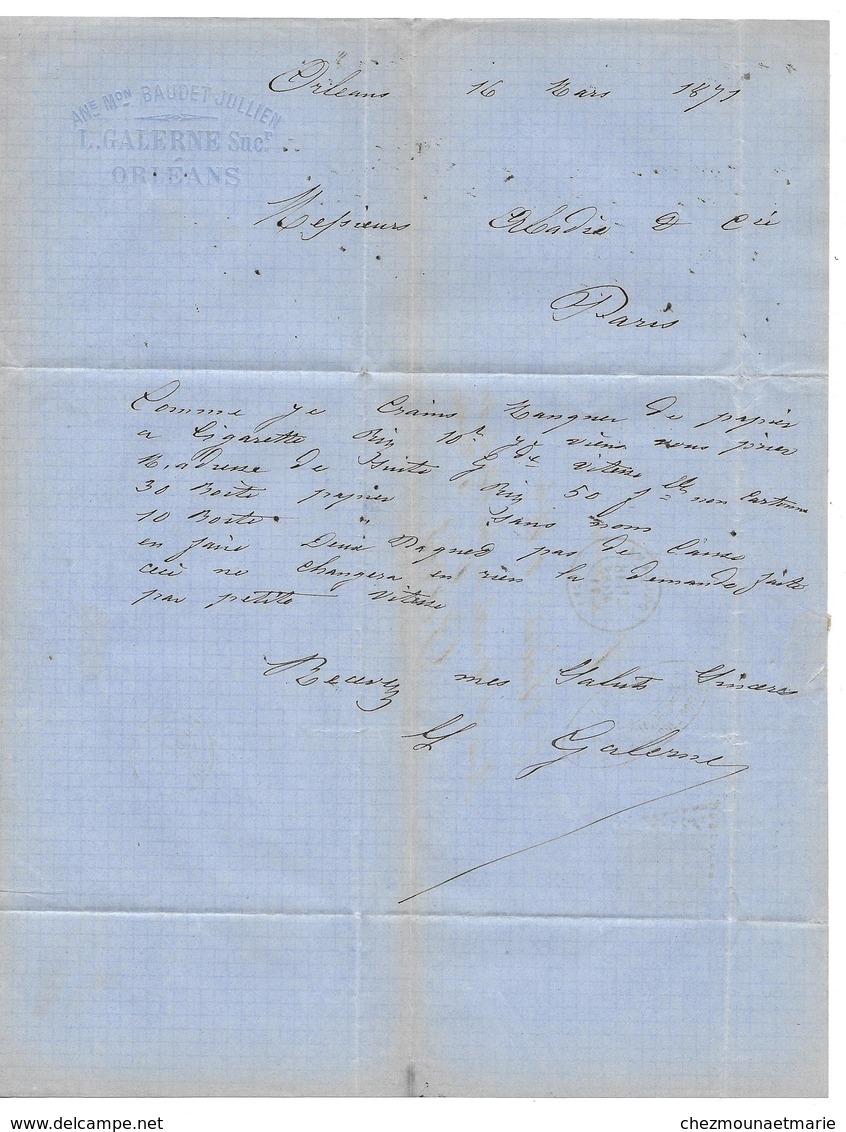 ANE MON BAUDET JULLIEN
L. GALERNE Sucr
ORLÉANS
Orléans 16 Mars 1871
Messieurs Abadie & Cie
Paris
Comme je Crains Manquer de papier
a Cigarette Riz 10t je viens vous prier
M, adresse de Suite Gde vitesse
30 Boite papier Riz 50 flles non Cartonn
10 Boite " " Sans nom
en faire Deux pas de Caisse
ceci ne Changera en rien la demande faite
par petite vitesse
Recevez mes Saluts Sincères
L Galerne
www.delcampe.net
chezmounaetmarie